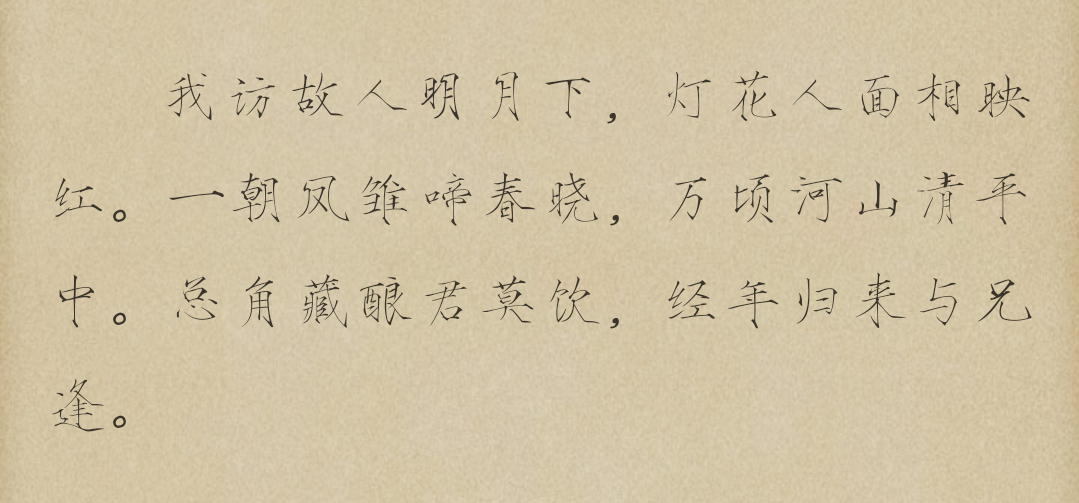 我访故人明月下，灯花人面相映
红。一朝凤雏啼春晓，万顷河山清平
中。总角藏酿君莫饮，经年归来与兄
逢。